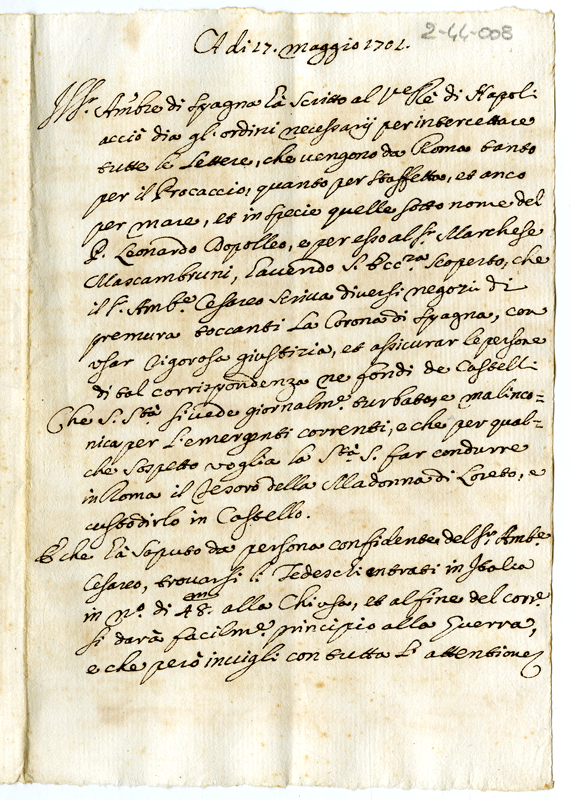 2-44-008
A di 17. Maggio 1701.
Il Sr. Ambre di Spagna hà scritto al Ve Rè di Napoli
acciò dia gl'ordini necessarij per intercettare
tutte le Lettere, che vengono da Roma tanto
per il Procaccio, quanto per staffetta, et anco
per mare, et in specie quelle sotto nome del
P. Leonardo Dopolleo, e per esso al Sr. Marchese
Mascambruni, havendo S. Ecc.za scoperto, che
il Sr. Amb.e Cesareo scriva diversi negozii di
premura toccanti la Corona di Spagna, con
usar rigorosa giustizia, et assicurar le persone
di tal corrispondenza ne fondi de Castelli
Che S. Stà si vede giornalm.e turbato, e malinco=
nica per l'emergenti correnti, e che per qual=
che sospetto voglia la Stà S. far condurre
in Roma il Tesoro della Madonna di Loreto, e
custodirlo in Castello.
E che hà saputo da persona confidente del Sr. Amb.e
Cesareo, trovarsi li Tedeschi entrati in Italia
in no. di 48.m alla Chiusa, et al fine del corr.e
si darà facilm.e principio alla Guerra,
e che però invigli con tutta l'attentione